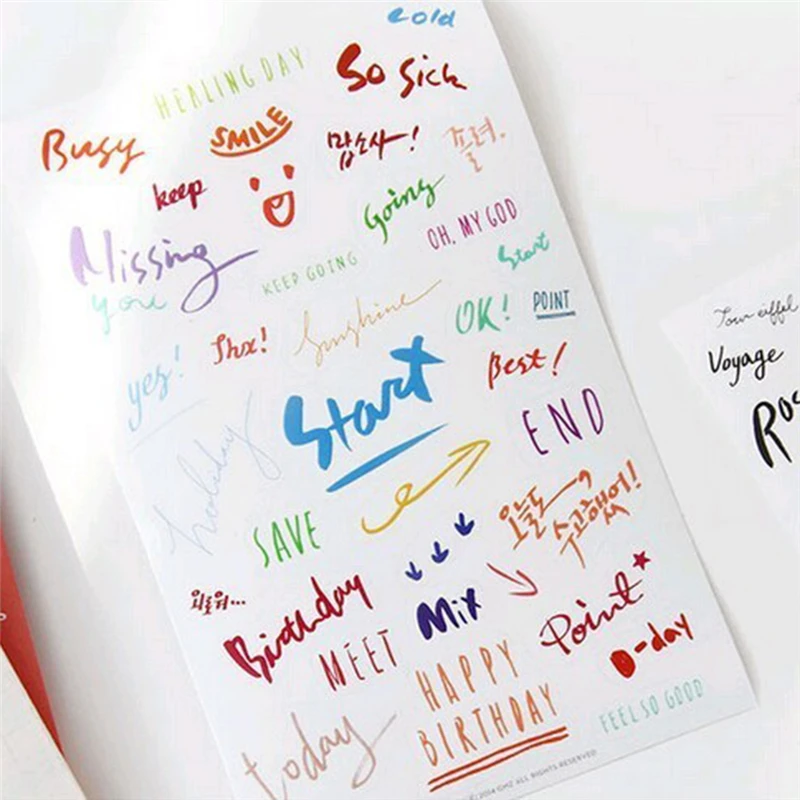 cold
HEALING DAY
So Sick
Busy
SMILE
맙소사!
졸려.
keep
Going
OH, MY GOD
Missing
you
KEEP GOING
Start
yes!
Thx!
Sunshine
OK!
POINT
Start
Best!
holiday
END
SAVE
오늘도
수고했어!
외로워...
Birthday
Mix
Point
MEET
D-day
HAPPY
BIRTHDAY
today
FEEL SO GOOD
2014 GMZ ALL RIGHTS RESERVED
Tour eiffel
Voyage